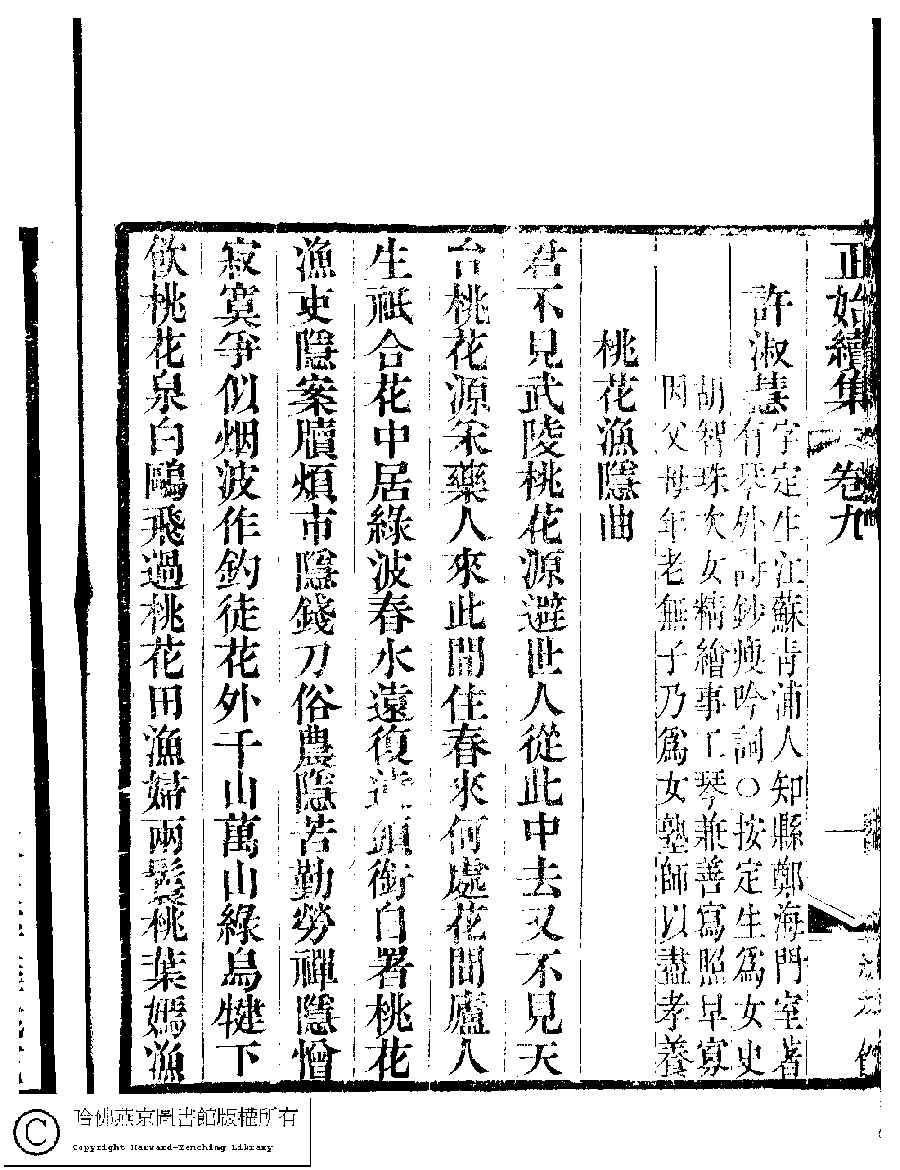 正始續集 卷九 一
許淑慧
字定生江蘇青浦人知縣鄭海門室著
有琴外詩鈔瘦吟詞○按定生爲女史
胡智珠次女精繪事工琴兼善寫照早寡
因父母年老無子乃爲女塾師以盡孝養
桃花漁隱曲
君不見武陵桃花源避世人從此中去又不見天
台桃花源采藥人來此間住春來何處花間廬人
生祇合花中居綠波春水遠復遠頭銜自署桃花
漁吏隱案牘煩市隱錢刀俗農隱苦勤勞禪隱憎
寂寞爭似烟波作釣徒花外千山萬山綠烏犍下
飲桃花泉白鷗飛過桃花田漁婦兩鬟桃葉嫣漁
哈佛燕京圖書館版權所有
Copyright Harvard-Yenching Library